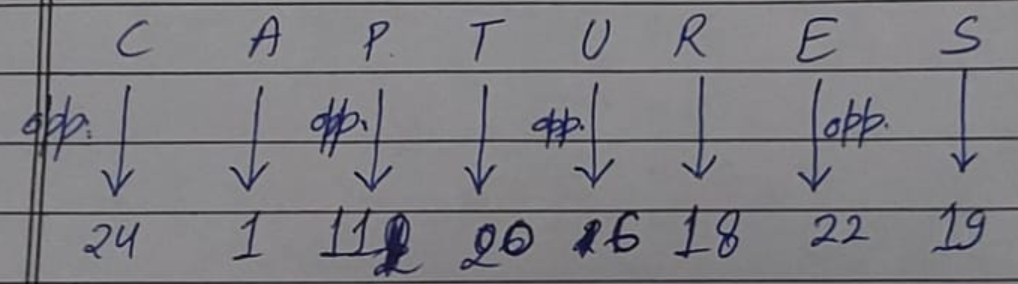 C A P. T U R E S
opp. opp. opp. opp.
24 1 11 20 6 18 22 19